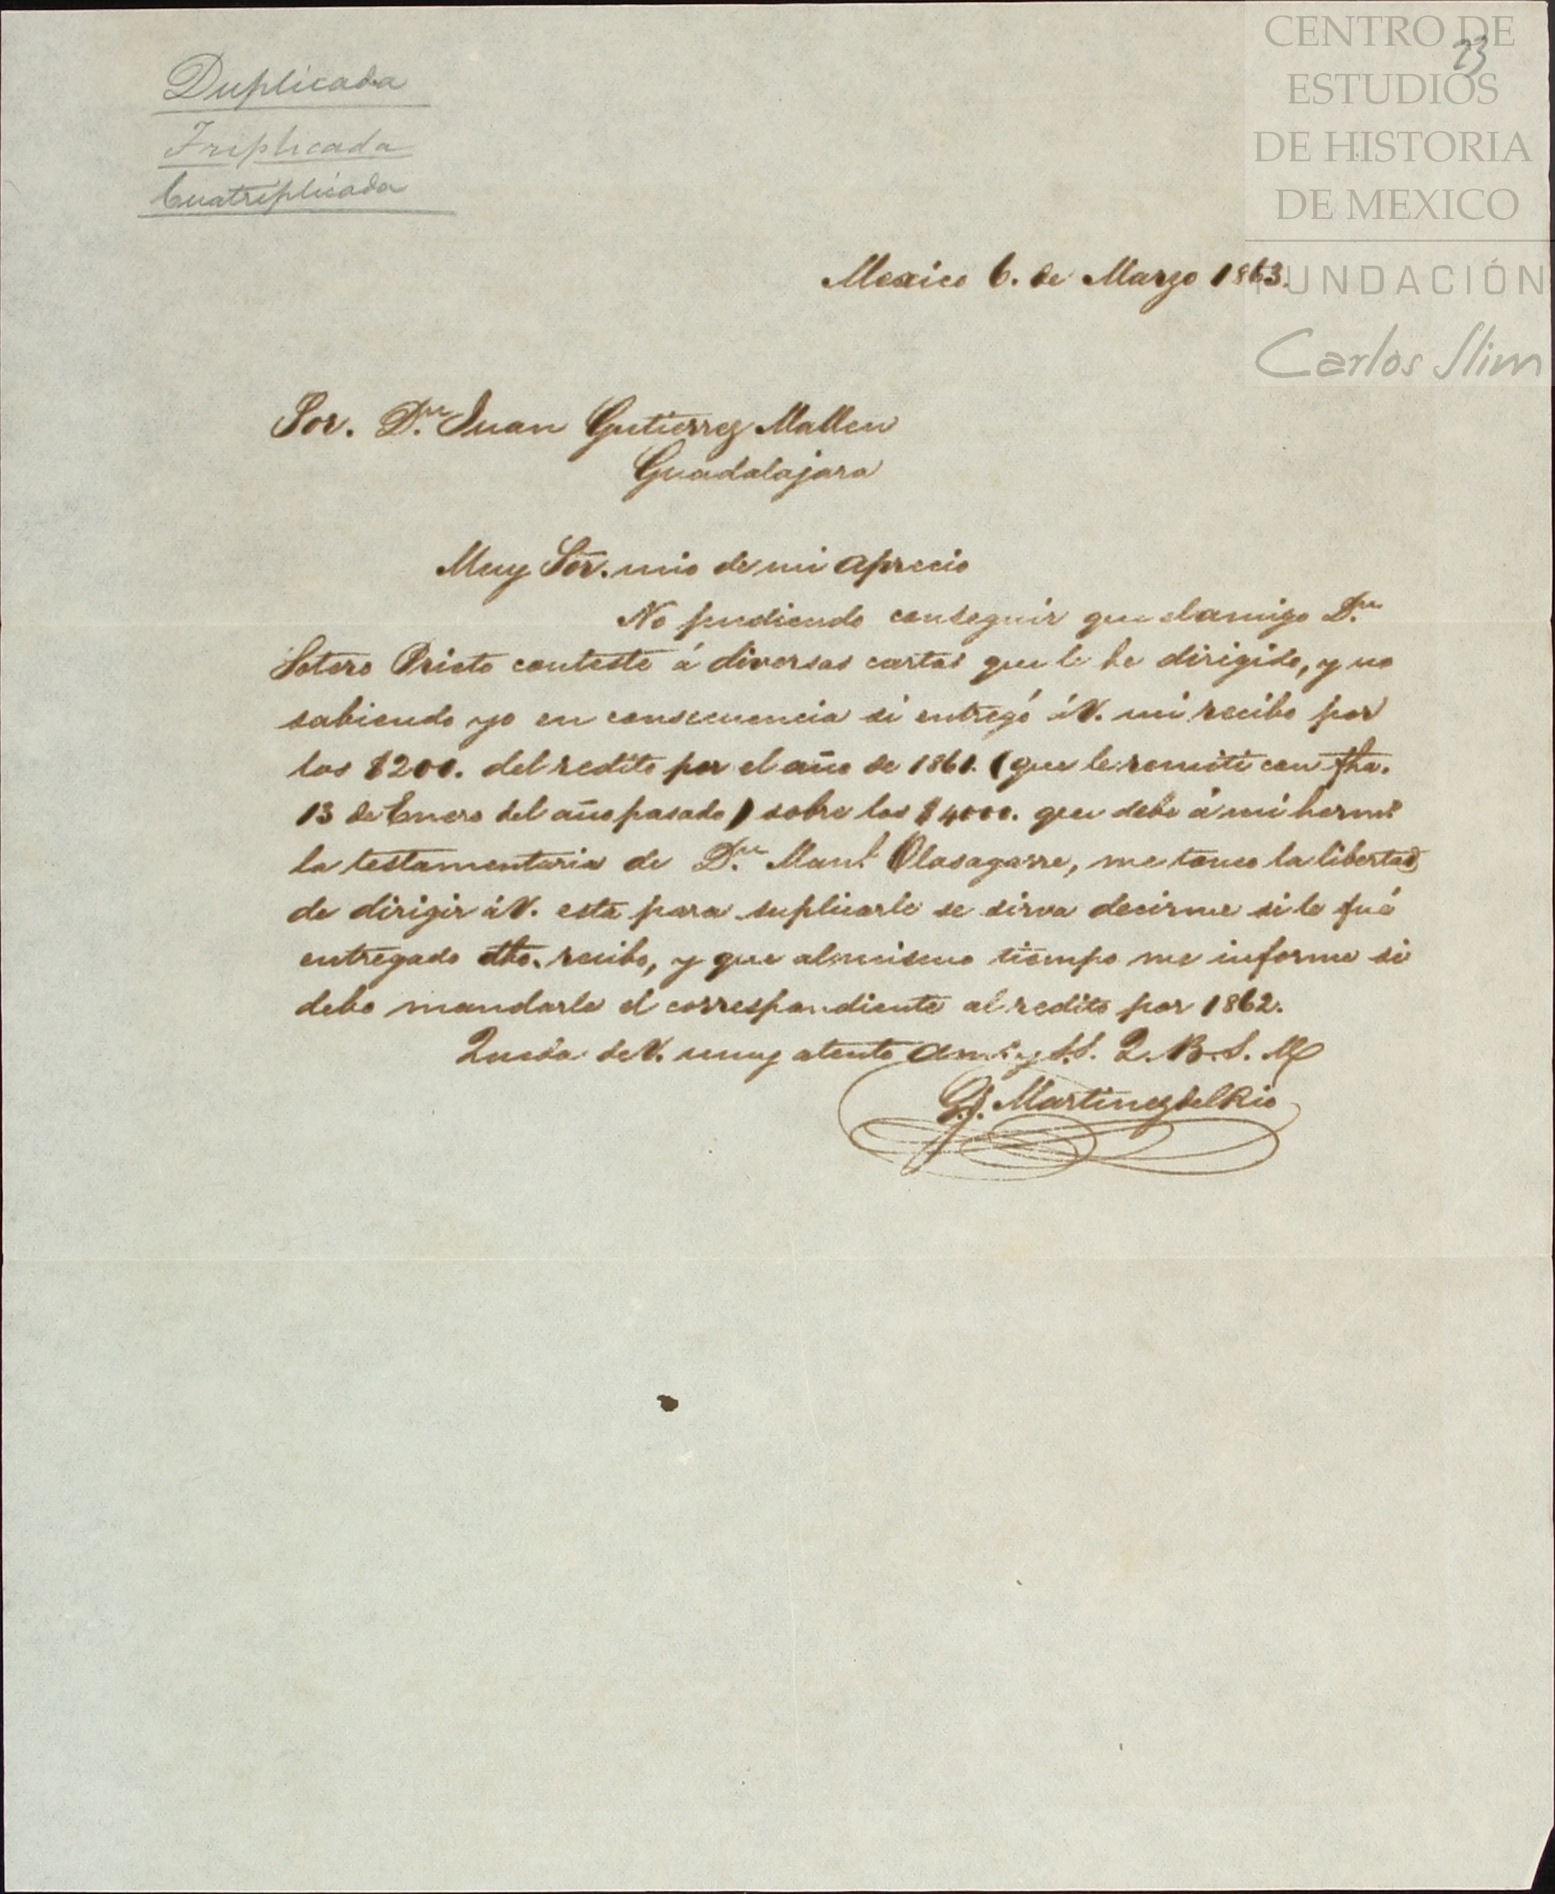 Duplicada
Triplicada
Cuatriplicada
23
CENTRO DE
ESTUDIOS
DE HISTORIA
DE MEXICO
FUNDACIÓN
Carlos Slim
Mexico 6. de Marzo 1863.
Sor. Dn. Juan Gutierrez Mallen
Guadalajara
Muy Sor. mio de mi aprecio
No pudiendo conseguir que el amigo Dn.
Sotero Prieto conteste á diversas cartas que le he dirigido, y no
sabiendo yo en consecuencia si entregó á V. mi recibo por
los $200. del redito por el año de 1861. (que le remiti con fha.
13 de Enero del año pasado) sobre los $4000. que debe á mi hermo.
la testamentaria de Dn. Manl. Olasagarre, me tomo la libertad
de dirigir á V. esta para suplicarle se sirva decirme si le fué
entregado dho. recibo, y que al mismo tiempo me informe si
debo mandarle el correspondiente al redito por 1862.
Queda de V. muy atento amo. y S.S. Q. B. S. M
Martinez del Rio